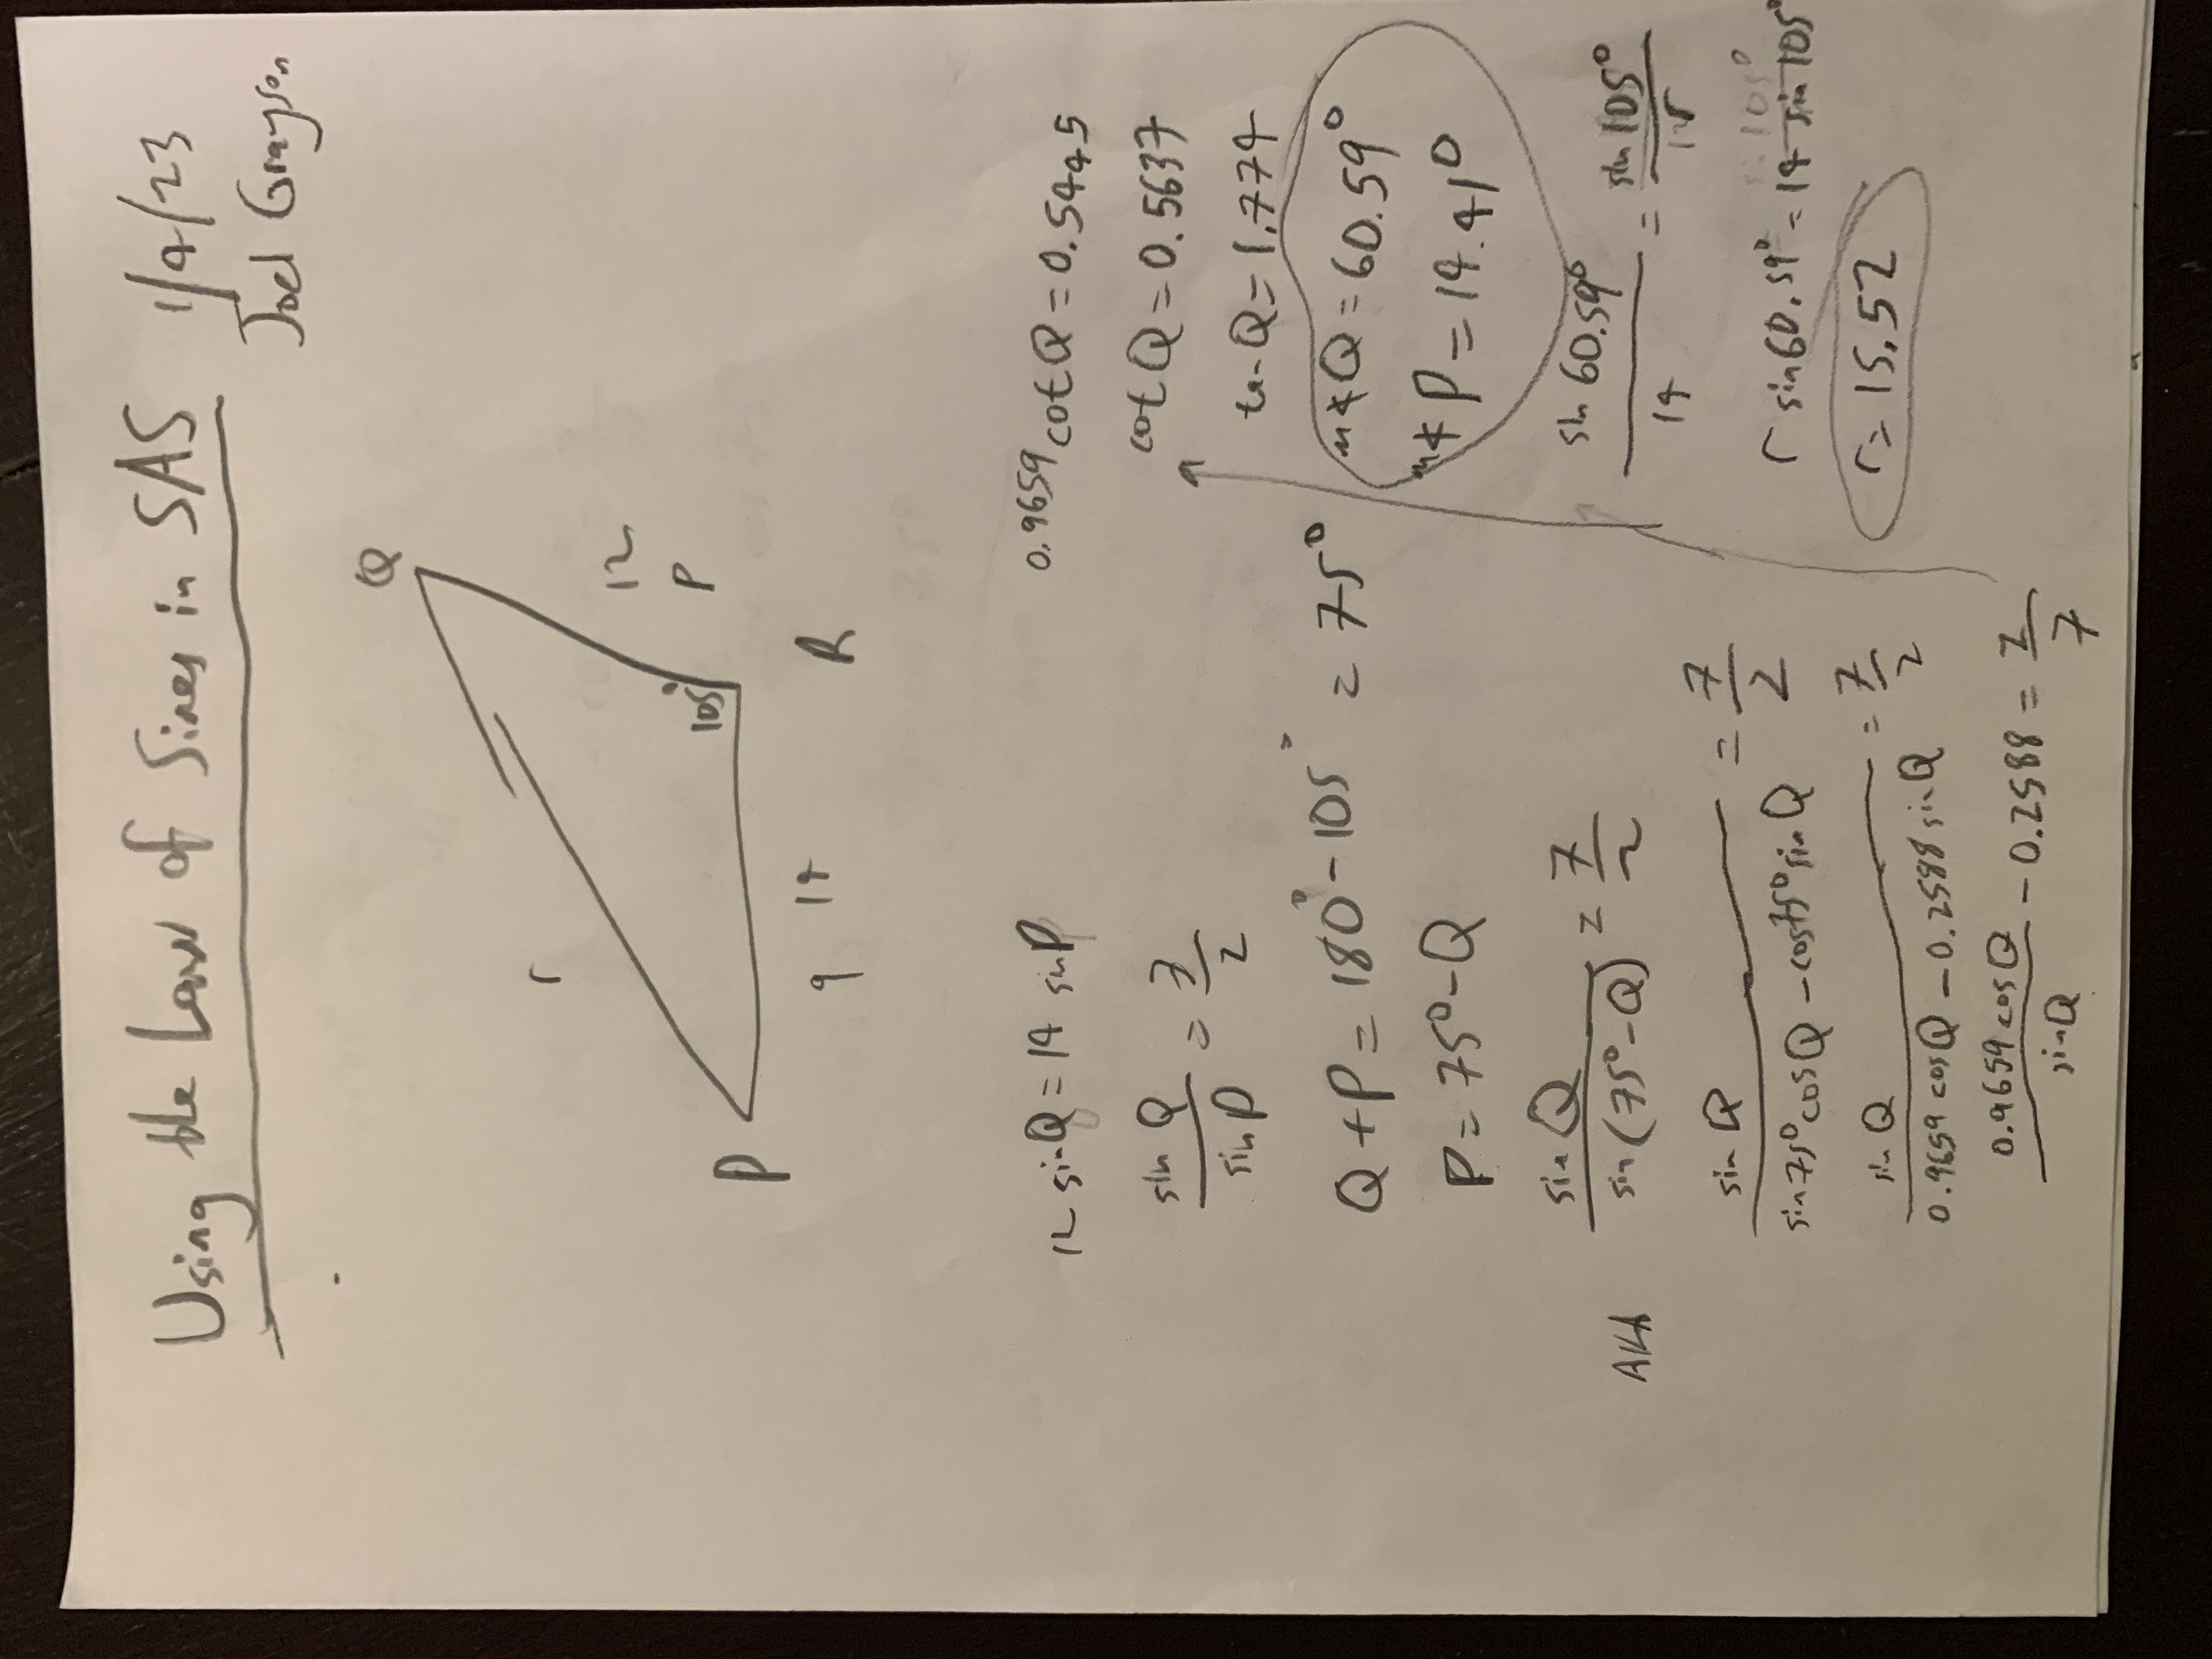 Using the Law of Sines in SAS
1/4/23
Joel Grayson
Q
r
12
P
105°
P
q 14
R
12 sinQ = 14 sinP
sin Q / sin P = 7/2
Q + P = 180° - 105° = 75°
P = 75° - Q
AKA sin Q / sin (75° - Q) = 7/2
sin Q / sin75° cosQ - cos75° sin Q = 7/2
sin Q / 0.9659 cosQ - 0.2588 sinQ = 7/2
0.9659 cosQ / sinQ - 0.2588 = 2/7
0.9659 cot Q = 0.5445
cot Q = 0.5637
tan Q = 1.774
m∡Q = 60.59°
m∡P = 14.41°
sin 60.59° / 14 = sin 105° / r
r sin60.59° = 14 sin 105°
r = 15.52